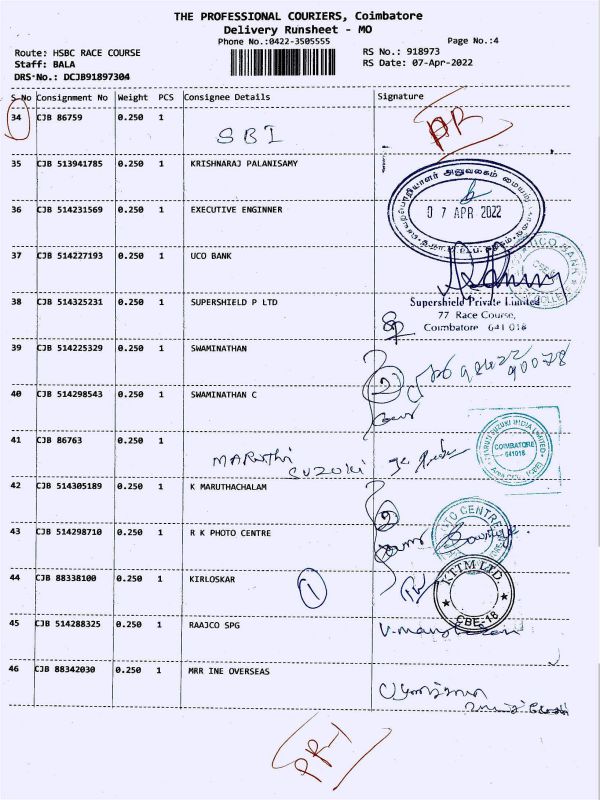 THE PROFESSIONAL COURIERS, Coimbatore
Delivery Runsheet - MO
Phone No.:0422-3505555
Page No.:4
Route: HSBC RACE COURSE
RS No.: 918973
Staff: BALA
RS Date: 07-Apr-2022
DRS No.: DCJB91897304
S No Consignment No Weight PCS Consignee Details Signature
34 CJB 86759 0.250 1 SBI
35 CJB 513941785 0.250 1 KRISHNARAJ PALANISAMY
36 CJB 514231569 0.250 1 EXECUTIVE ENGINNER
07 APR 2022
37 CJB 514227193 0.250 1 UCO BANK
UCO BANK
38 CJB 514325231 0.250 1 SUPERSHIELD P LTD
Supershield Private Limited
77 Race Course,
Coimbatore 641 018
39 CJB 514225329 0.250 1 SWAMINATHAN
2
40 CJB 514298543 0.250 1 SWAMINATHAN C
41 CJB 86763 0.250 1 MARuthi SUZUKi
MARUTI SUZUKI INDIA LIMITED
COIMBATORE
641018
42 CJB 514305189 0.250 1 K MARUTHACHALAM
2
43 CJB 514298710 0.250 1 R K PHOTO CENTRE
44 CJB 88338100 0.250 1 KIRLOSKAR
1
KTTM LTD.
CBE-18
45 CJB 514288325 0.250 1 RAAJCO SPG
46 CJB 88342030 0.250 1 MRR INE OVERSEAS